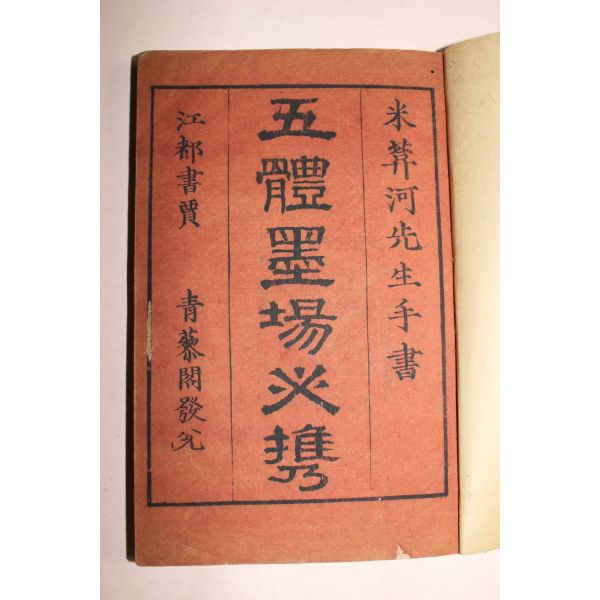 米葊河先生手書
五體墨場必携
江都書賈　青藜閣發兌